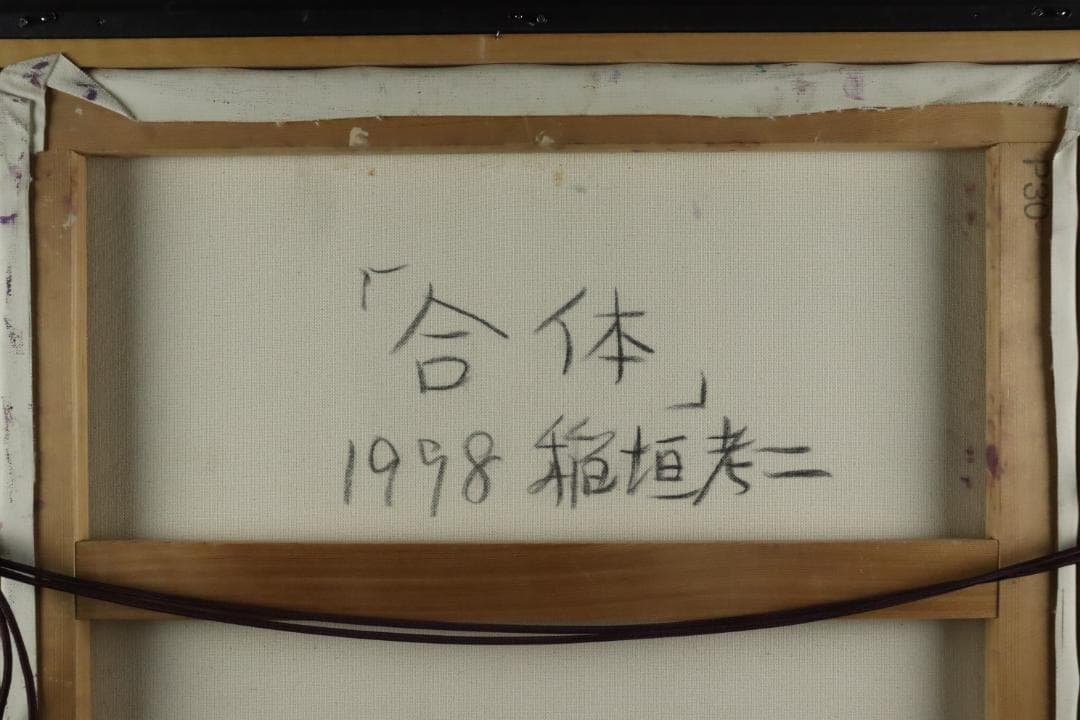 「合体」
1998 稲垣考二
P30